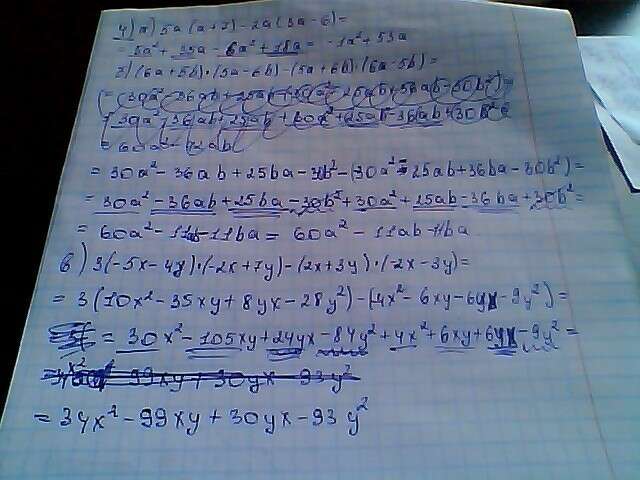 4) а) 5a(a+7)-2a(3a-6)=
= 5a²+35a-6a²+18a = -1a²+53a
б) (6a+5b)·(5a-6b)-(5a+6b)·(6a-5b)=
= 30a²-36ab+25ba-30b²-(30a²-25ab+36ba-30b²)=
= 30a²-36ab+25ba-30b²+30a²+25ab-36ba+30b²=
= 60a²-11ab-11ba = 60a²-11ab-11ba
в) 3(-5x-4y)·(-2x+7y)-(2x+3y)·(-2x-3y)=
= 3(10x²-35xy+8yx-28y²)-(4x²-6xy-6yx-9y²)=
= 30x²-105xy+24yx-84y²+4x²+6xy+6yx-9y²=
= 34x²-99xy+30yx-93y²